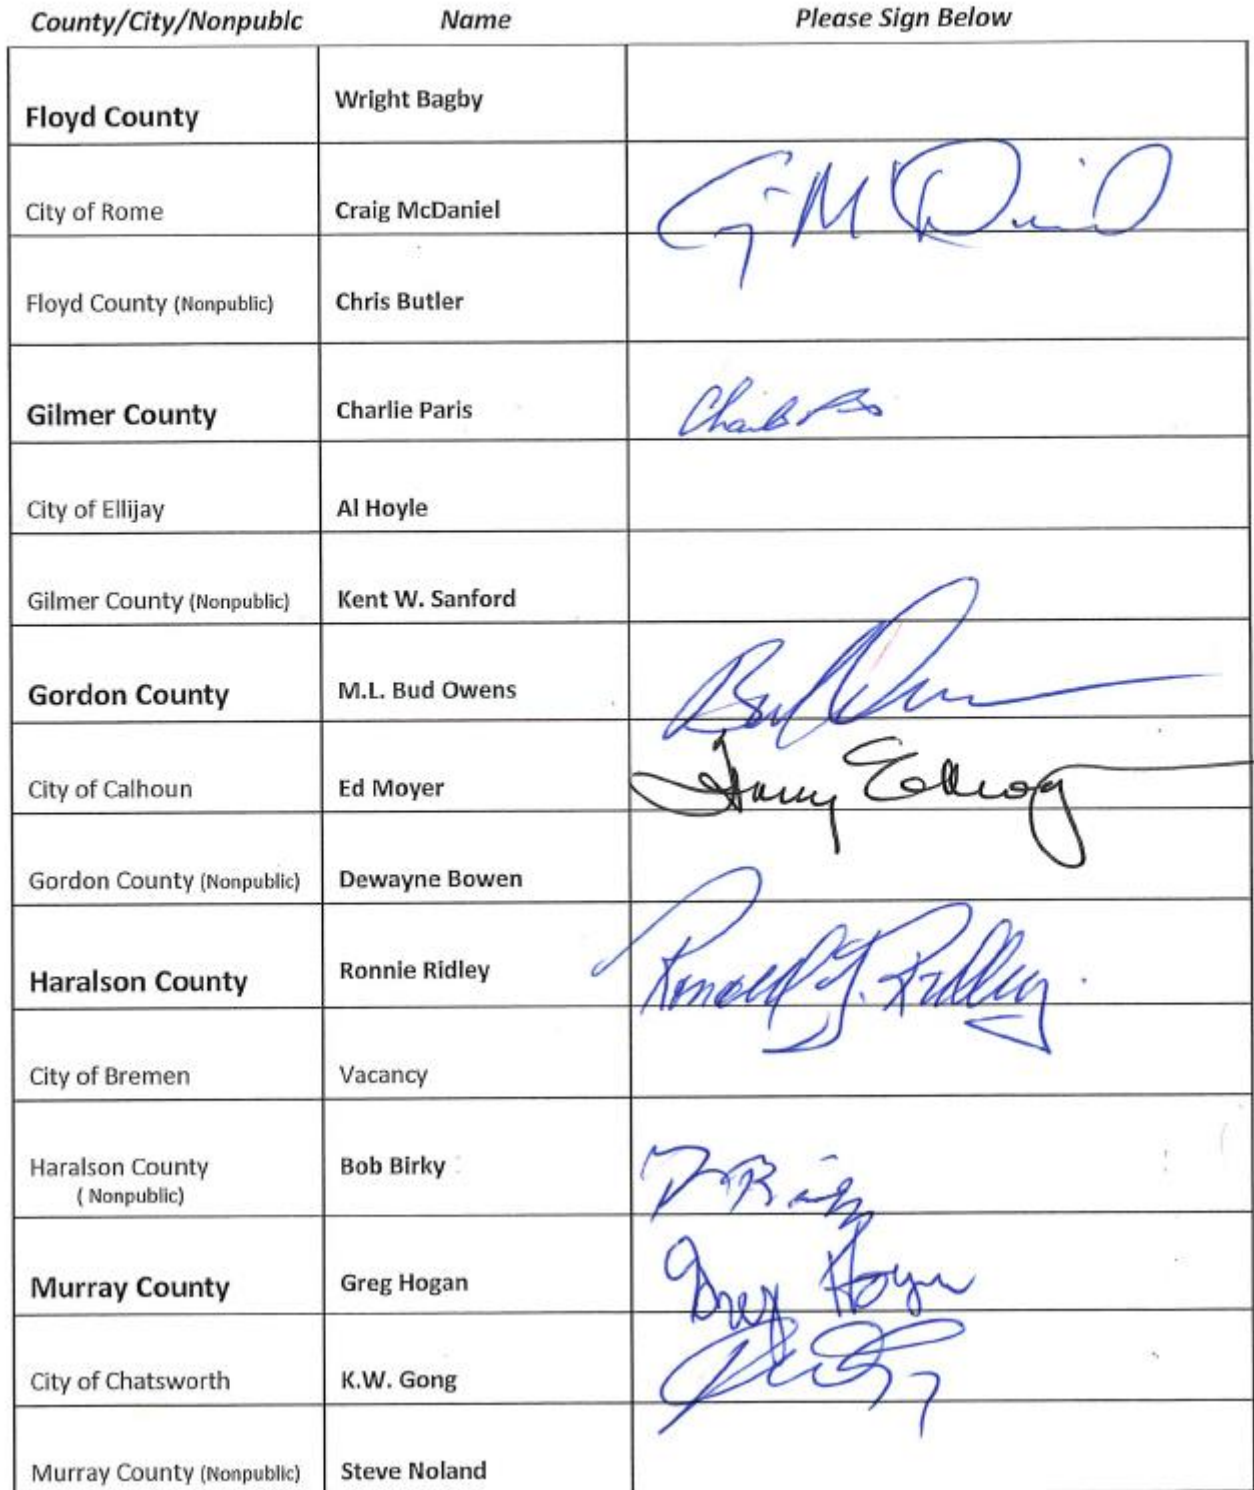 County/City/Nonpublc Name Please Sign Below
Floyd County Wright Bagby
City of Rome Craig McDaniel
Floyd County (Nonpublic) Chris Butler
Gilmer County Charlie Paris
City of Ellijay Al Hoyle
Gilmer County (Nonpublic) Kent W. Sanford
Gordon County M.L. Bud Owens Bud Owens
City of Calhoun Ed Moyer
Gordon County (Nonpublic) Dewayne Bowen
Haralson County Ronnie Ridley Ridley
City of Bremen Vacancy
Haralson County Bob Birky
( Nonpublic)
Murray County Greg Hogan Greg Hogan
City of Chatsworth K.W. Gong
Murray County (Nonpublic) Steve Noland